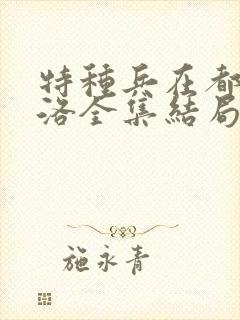 特種兵在都
洛全集結局
施永青